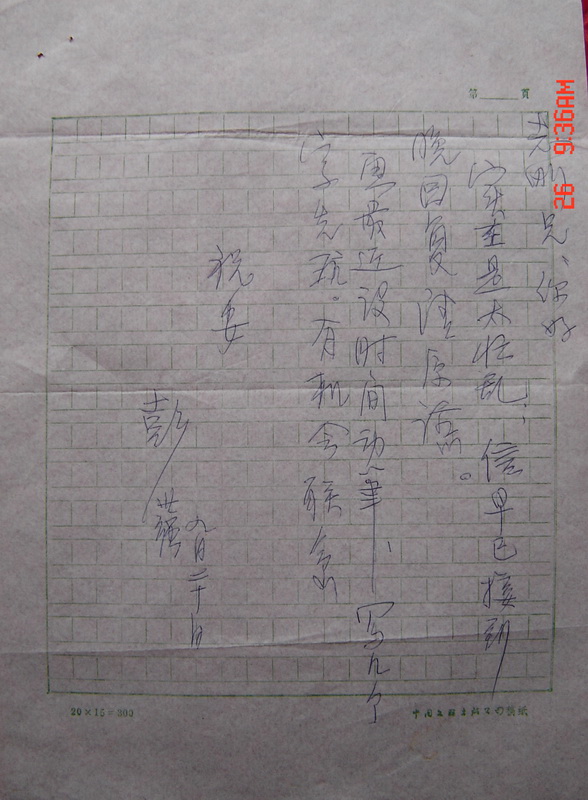 第 頁
兄、你好
实在是太忙乱，信早已接到
晚回复请原谅。
画最近没时间动笔、写几个
字先玩。有机会联系
祝安
彭
九月二十日
20×15=300
26 9:36AM